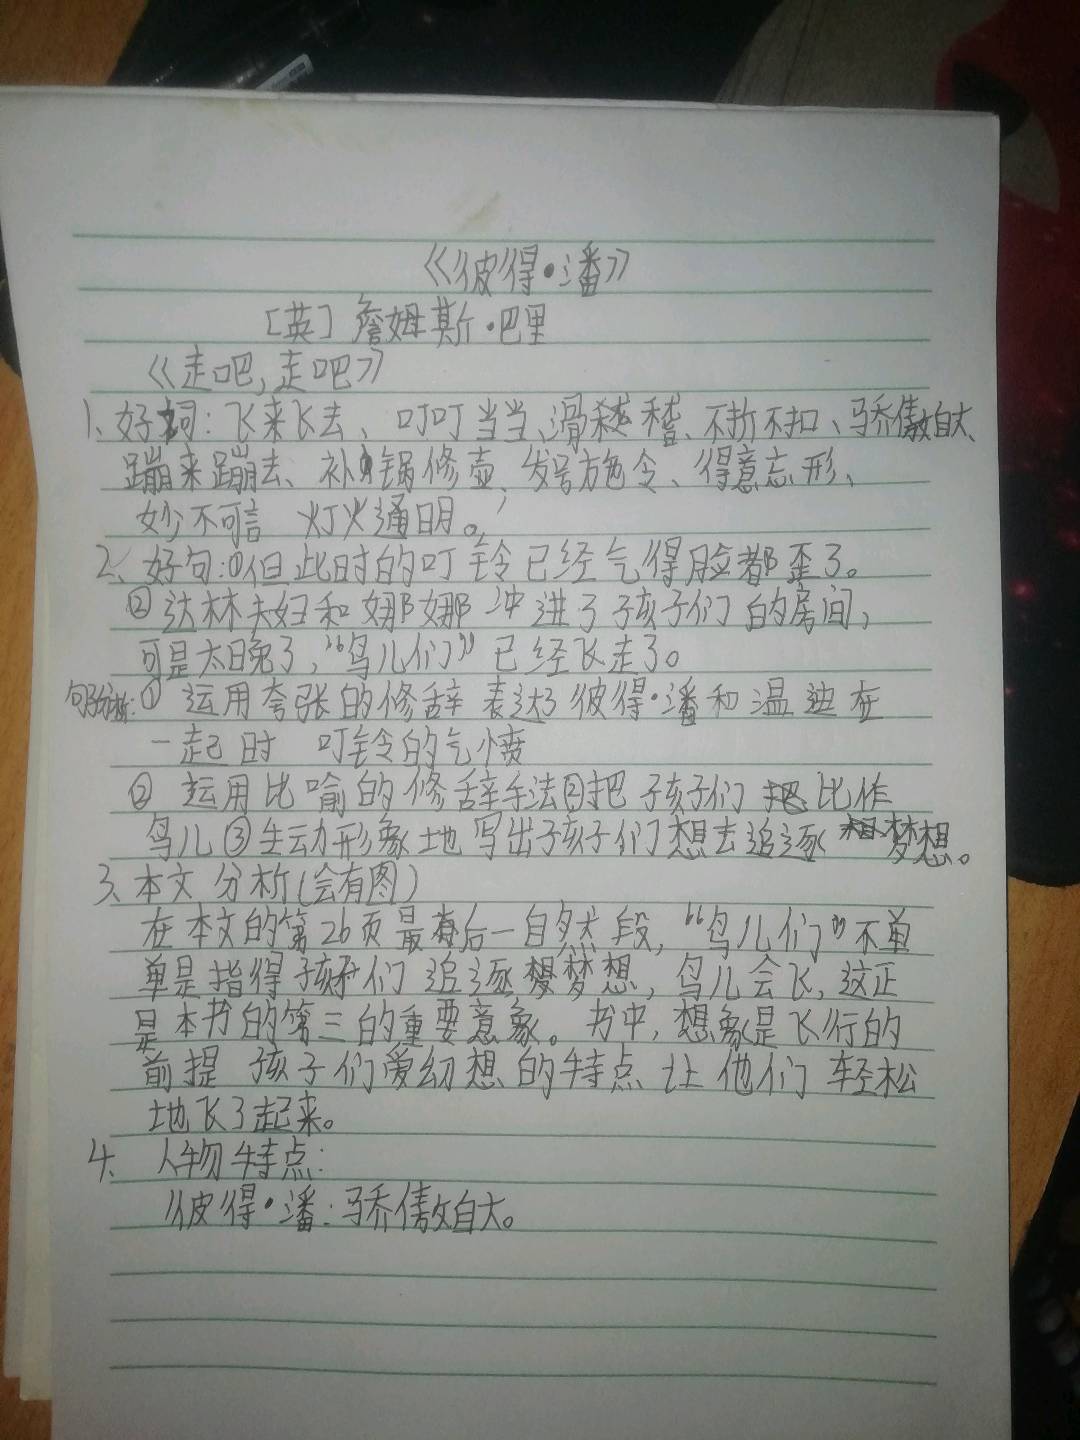 《彼得·潘》
[英]詹姆斯·巴里
《走吧,走吧》
1、好词:飞来飞去、叮叮当当、滑稽、不折不扣、骄傲自大、
蹦来蹦去、补锅修壶、发号施令、得意忘形、
妙不可言 灯火通明。
2、好句:①但此时的叮铃已经气得脸都歪了。
②达林夫妇和娜娜冲进了孩子们的房间,
可是太晚了,“鸟儿们”已经飞走了。
句子分析:①运用夸张的修辞表达了彼得·潘和温迪在
一起时 叮铃的气愤
②运用比喻的修辞手法②把孩子们比作
鸟儿③生动形象地写出孩子们想去追逐梦想。
3、本文分析(会有图)
在本文的第26页最后一自然段,“鸟儿们”不单
单是指得孩子们追逐梦想,鸟儿会飞,这正
是本书的第三的重要意象。书中,想象是飞行的
前提 孩子们爱幻想的特点让他们轻松
地飞了起来。
4、人物特点:
彼得·潘:骄傲自大。